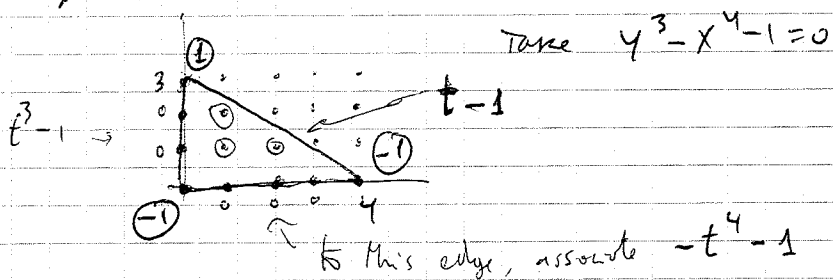 Take y^3 - x^4 - 1 = 0
1
3
0
t^3 - 1 →
t - 1
0
-1
-1
0 0 0 4
to this edge, associate -t^4 - 1